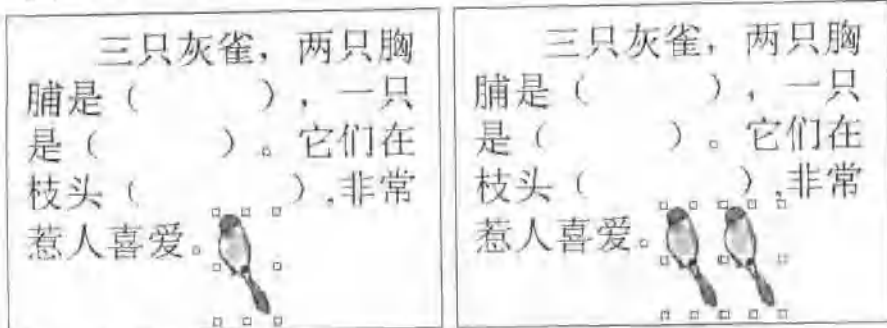 三只灰雀，两只胸
脯是（　　　），一只
是（　　　）。它们在
枝头（　　　），非常
惹人喜爱。
三只灰雀，两只胸
脯是（　　　），一只
是（　　　）。它们在
枝头（　　　），非常
惹人喜爱。